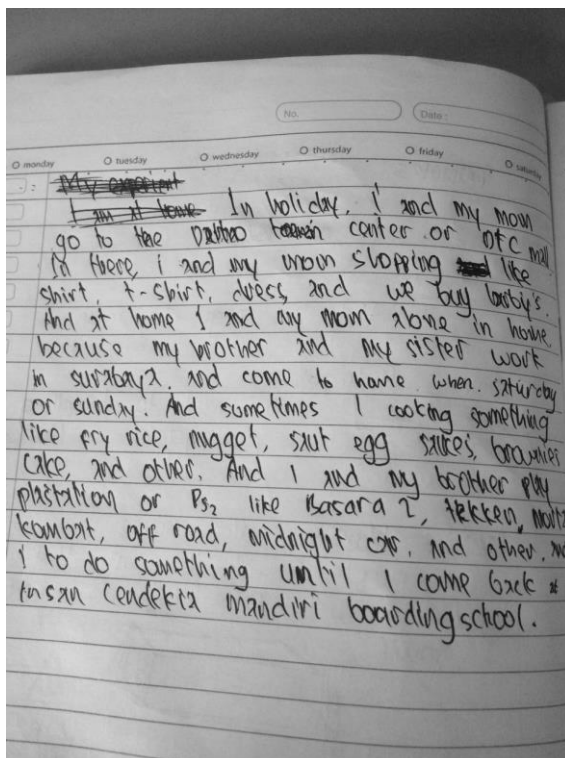 No.
Date :
monday tuesday wednesday thursday friday saturday
My experient
I am at home In holiday, i and my mom
go to the center or DTC mall
In there, i and my mom shopping like
shirt, t-shirt, dress, and we buy baby's.
And at home I and my mom alone in home
because my brother and my sister work
in surabaya. and come to home when saturday
or sunday. And sometimes I cooking something
like fry rice, nugget, egg sauces, brownies
cake, and other. And I and my brother play
plastation or Ps2 like Basara 2, tekken,
kombat, off road, midnight car, and other,
I to do something until I come back
insan cendekia mandiri boarding school.